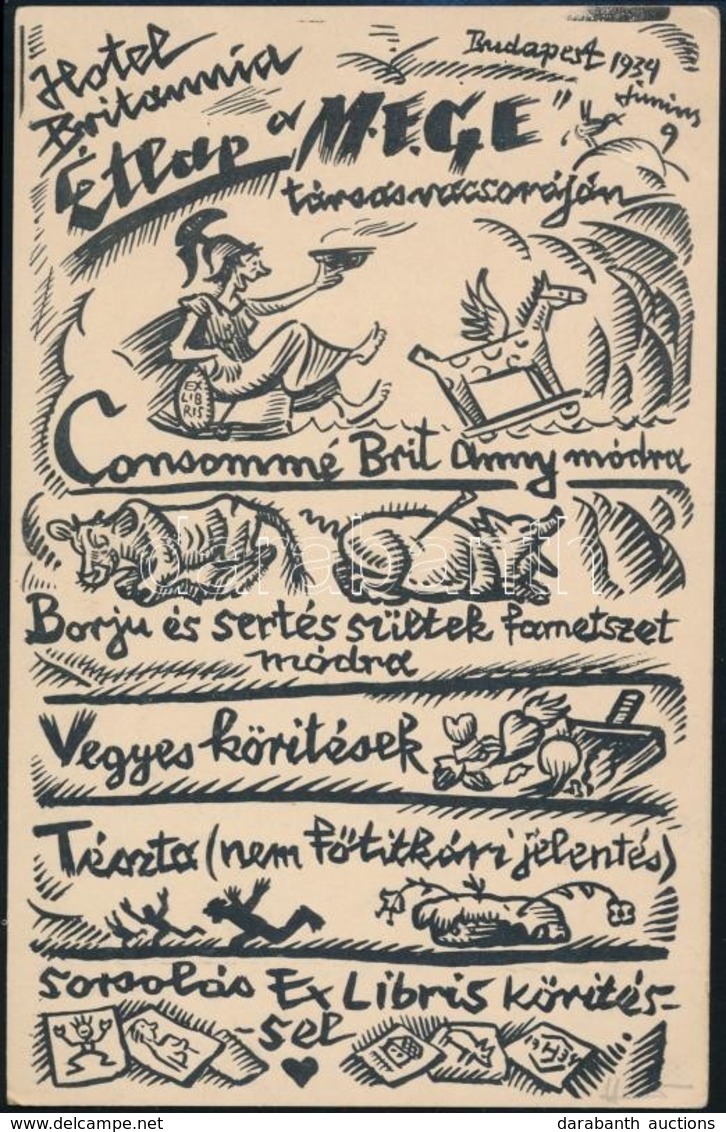 Hotel
Britannia
Budapest 1934
junius
9
Étlap a "M.E.G.E"
társasvacsoráján
EX
LIB
RIS
Consommé Brit Anny módra
darabanth
Borju és sertés sültek fametszet
módra
Vegyes köritések
Tészta (nem főtitkári jelentés)
Sorsolás Ex Libris körités-
-sel
1934
darabanth auctions